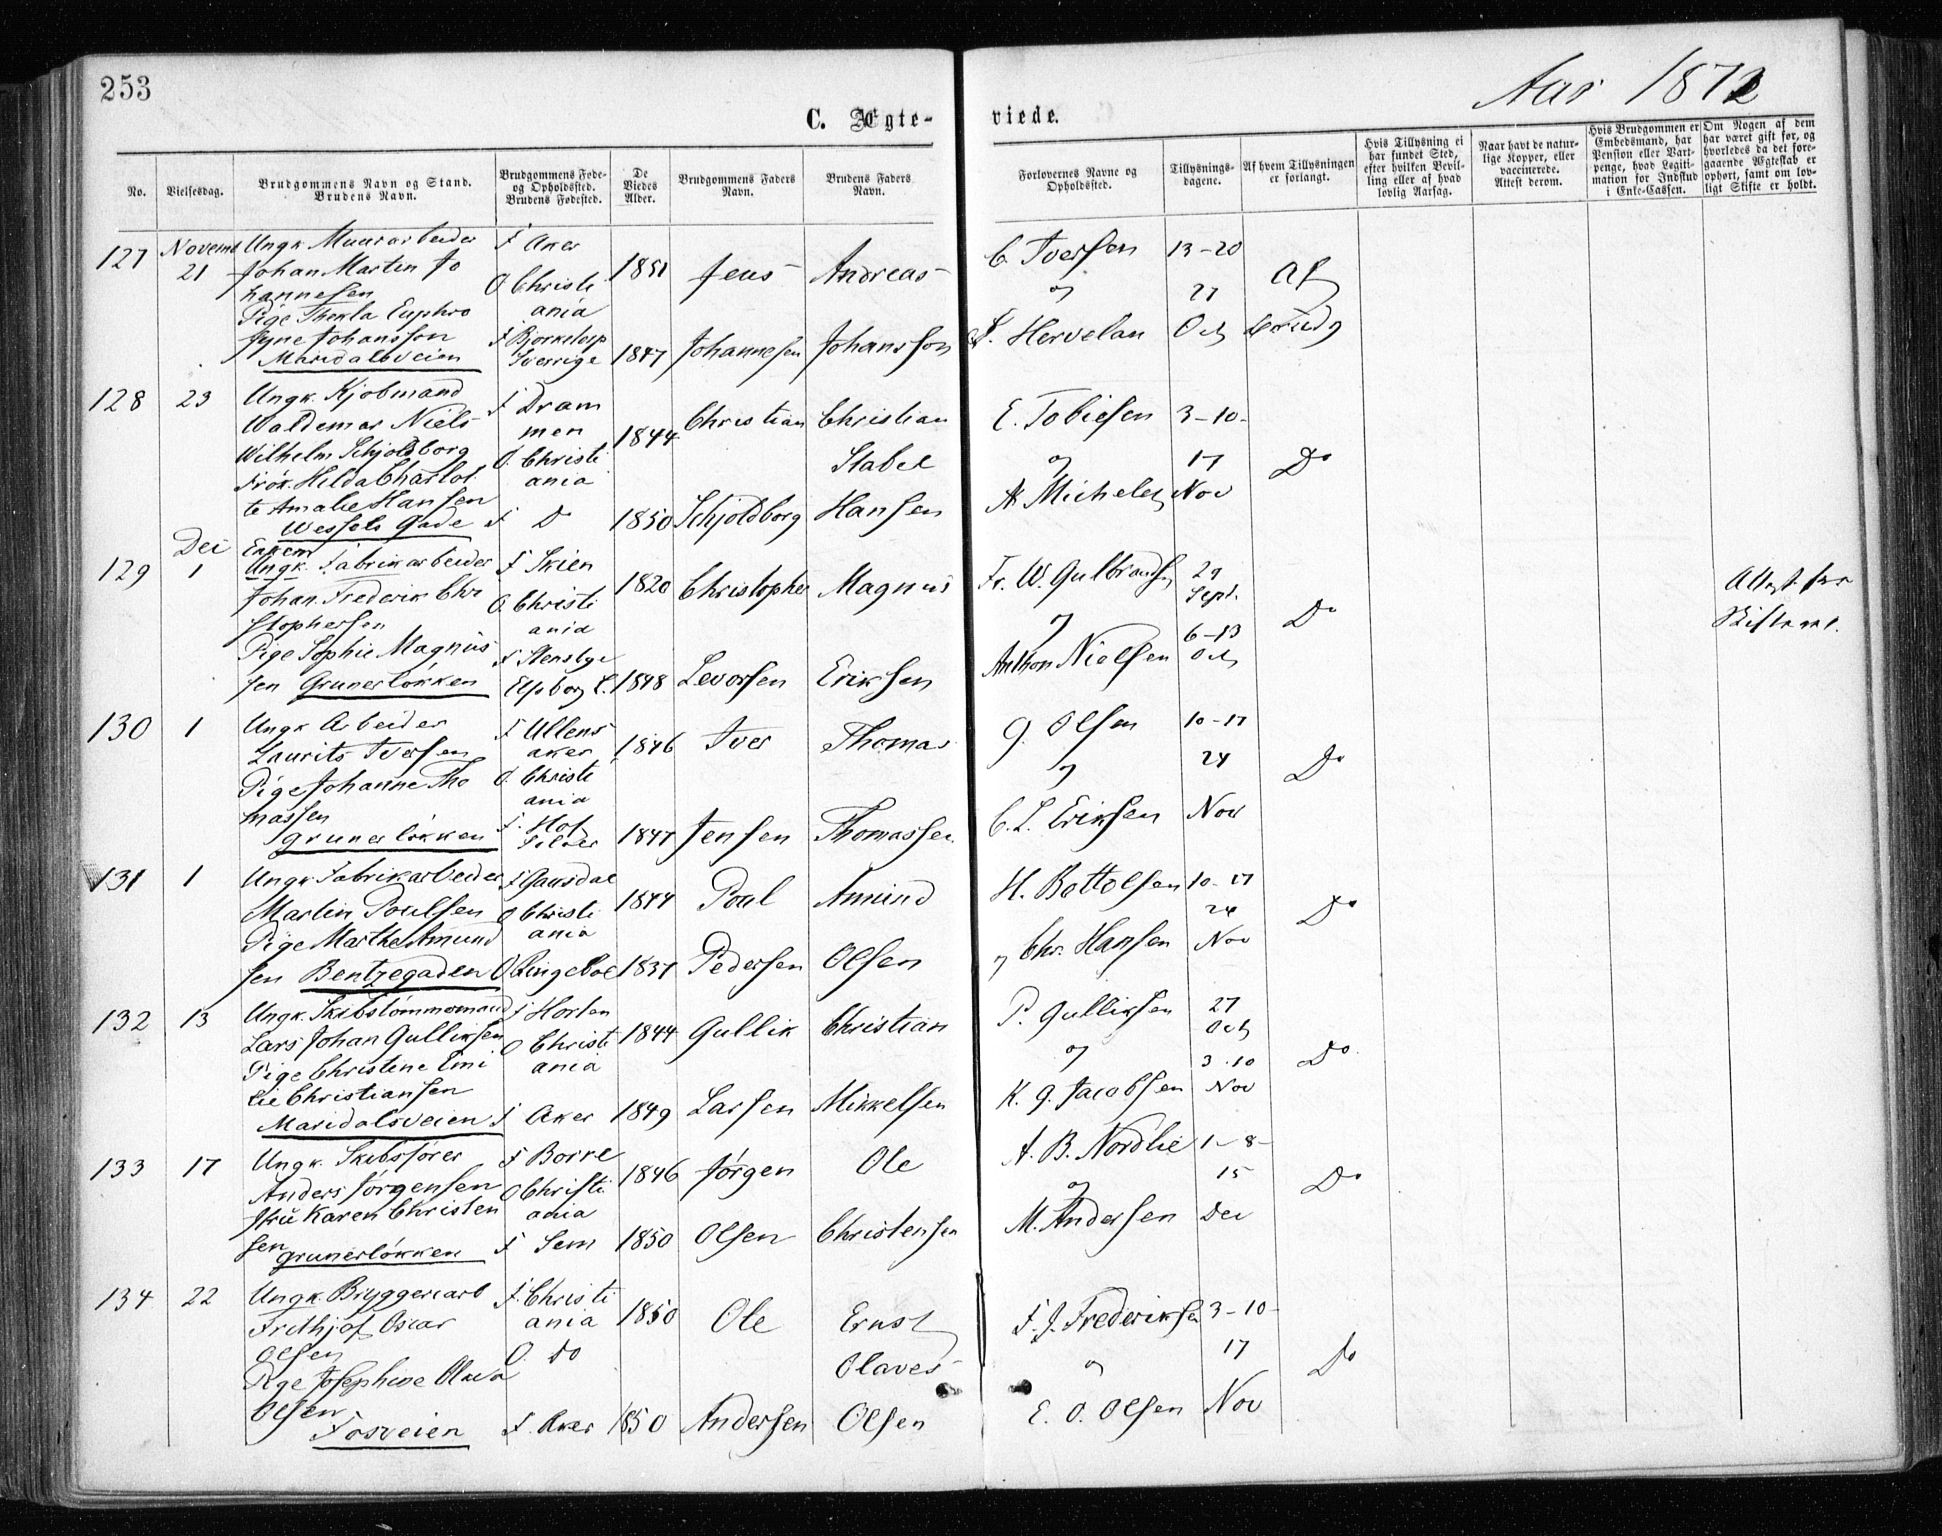 253
Aar 1872
C. Ægte-
viede.
No.
Vielsesdag.
Brudgommens Navn og Stand.
Brudens Navn.
Brudgommens Føde-
og Opholdssted.
Brudens Fødested.
De
Viedes
Alder.
Brudgommens Faders
Navn.
Brudens Faders
Navn.
Forlovernes Navne og
Opholdssted.
Tillysnings-
dagene.
Af hvem Tillysningen
er forlangt.
Hvis Tillysning ei
har fundet Sted,
efter hvilken Bevil-
ling eller af hvad
lovlig Aarsag.
Naar havt de natur-
lige Kopper, eller
vaccinerede.
Attest derom.
Hvis Brudgommen er
Embedsmand, har
Pension eller Vart-
penge, hvad Legiti-
mation for Indskud
i Enke-Cassen.
Om Nogen af dem
har været gift før, og
hvorledes da det fore-
gaaende Ægteskab er
ophørt, samt om lov-
ligt Skifte er holdt.
127
Novemb
21
Ungk. Muurarbeider
Johan Martin Jo
hannesen
Pige Thekla Euphro
syne Johansson
Maridalsveien
F Aker
O Christi
ania
F Bjorketorp
Sverrige
1851
1847
Jens
Johannesen
Andreas
Johansson
C. Iversen
og
Hervelan
13-20
27
Oct
Af
Brudg
128
23
Ungk. Kjøbmand
Waldemar Niels
Wilhelm Schjoldborg
Frøk. Hilda Charlot
te Amalie Hansen
Wessels Gade
F Dram
men
O. Christi
ania
F Do
1844
1850
Christian
Schjoldborg
Christian
Stabel
Hansen
E. Tobiesen
og
A Michelet
3-10-
17
Nov
Do
129
Dec
1
Enkem
Ungk. Fabrikarbeider
Johan Frederik Chri
stophersen
Pige Sophie Magnus
sen Grunerløkken
F Skien
O. Christi
ania
F Stenbye
Elfsborg L.
1820
1848
Christopher
Levorsen
Magnus
Eriksen
Fr. W. Gulbrandsen
og
Anthon Nielsen
29
Sept.
6-13
Oct
Do
Attest fra
Skifteret.
130
1
Ungk Arbeider
Laurits Iversen
Pige Johanne Tho
massen
Grunerløkken
F Ullens
aker
O. Christi
ania
F. Hof
Soløer
1846
1847
Iver
Jensen
Thomas
Thomassen
G. Olsen
og
C. L. Eriksen
10-17
24
Nov
Do
131
1
Ungk Fabrikarbeider
Martin Poulsen
Pige Marthe Amund
sen Bentzegaden
F Gausdal
O Christi
ania
O Ringeboe
1844
1837
Poul
Pedersen
Amund
Olsen
H. Bottolsen
og Chr. Hansen
10-17
24
Nov
Do
132
13
Ungk. Skibstømmermand
Lars Johan Gulliksen
Pige Christine Emi
lie Christiansen
Maridalsveien
F Horten
O Christi
ania
F Aker
1844
1849
Gullik
Larsen
Christian
Mikkelsen
P. Gulliksen
og
K. G. Jacobsen
27
Oct
3.10
Nov
Do
133
17
Ungk. Skibsfører
Anders Jørgensen
Jfru Karen Christen
sen Grunerløkken
F Borre
O Christi
ania
F Sem
1846
1850
Jørgen
Olsen
Ole
Christensen
A. B. Nordlie
og
M. Andersen
1-8-
15
Dec
Do
134
22
Ungk. Bryggeriarb
Frithjof Oscar
Olsen
Pige Josephine Olava
Olsen
Fosveien
F. Christi
ania
O. Do
F. Aker
1850
1850
Ole
Andersen
Ernst
Olaves
Olsen
F. J. Frederiksen
og
E. O. Olsen
3-10-
17
Nov
Do